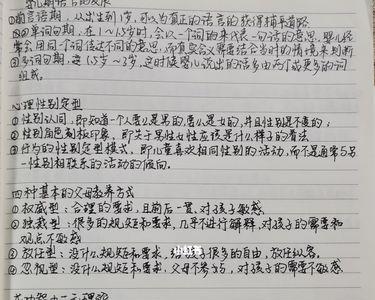 婴儿期语言的发展
①前言语期，从出生到1岁，可以为真正的语言的获得铺来道路
②单词句期，在1～1.5岁时，会以一个词的来代表一句话的意思，婴儿经常会用同一个词传达不同的意思，而真实含义需要结合当时的情境来判断
③多词句期，这1.5岁～3岁，这时候婴儿说出的话多由两个或更多的词
组成。
心理性别定型
①性别认同，即知道一个人要么是男的，要么是女的，并且性别是不变的；
②性别角色刻板印象，即关于男性女性应该是什么样子的看法
③行为的性别定型模式，即儿童喜欢相同性别的活动，而不是通常与另
一性别相联系的活动的倾向。
四种基本的父母教养方式
①权威型：合理的要求，且前后一置，对孩子敏感
②独裁型：很多的规矩和要求，几乎不进行解释，对孩子的需要和
观点不敏感
③放任型：没什么规矩和要求，给孩子很多的自由，放任纵容。
④忽视型：没什么规矩和要求，父母不参与，对孩子的需要不敏感
小红书